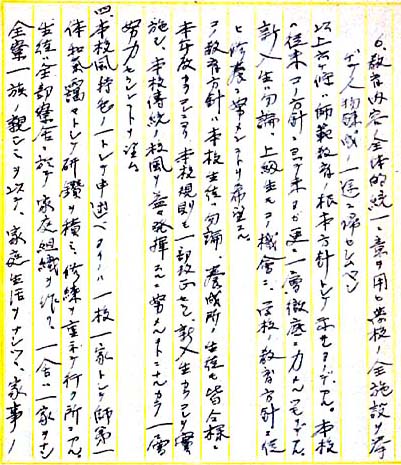 6、教育内容ノ全体的統一ニ意ヲ用ヒ學校ノ全施設ヲ挙
ゲテ人物練成ノ一途ニ帰セシメン
以上六條ハ師範教育ノ根本方針トシテ示セルモノデアル。本校
ノ従来コノ方針ニヨッテ来タガ更ニ一層徹底ニ力メルモノデアル
新入生ハ勿論、上級生モコノ機會ニ、学校ノ教育方針ニ従
ヒ修養ニ努メントヲ希望スル
コノ教育方針ハ本校生徒ハ勿論、養成所ノ生徒モ皆合様ニ
本年度ヨリ 本校規則モ一部改正セラレ、新入生カラ實
施シ、本校傳統ノ校風ヲ益々発揮スルニ努メルコトニナルカラ一層
努力センコトヲ望ム
四、本校風ノ特色ノ一トシテ申述ベタイノハ一校一家トシテ師弟一
体和気靄々トシテ研鑽ヲ積ミ、修練ヲ重ネテ行ク所ニアル。
生徒ハ全部寮舎ニ於テ家庭組織ヲ作リ、一舎ハ一家ヲナシ
全寮一族ノ親シミヲ以テ、家庭生活ヲナシツツ、家事ノ